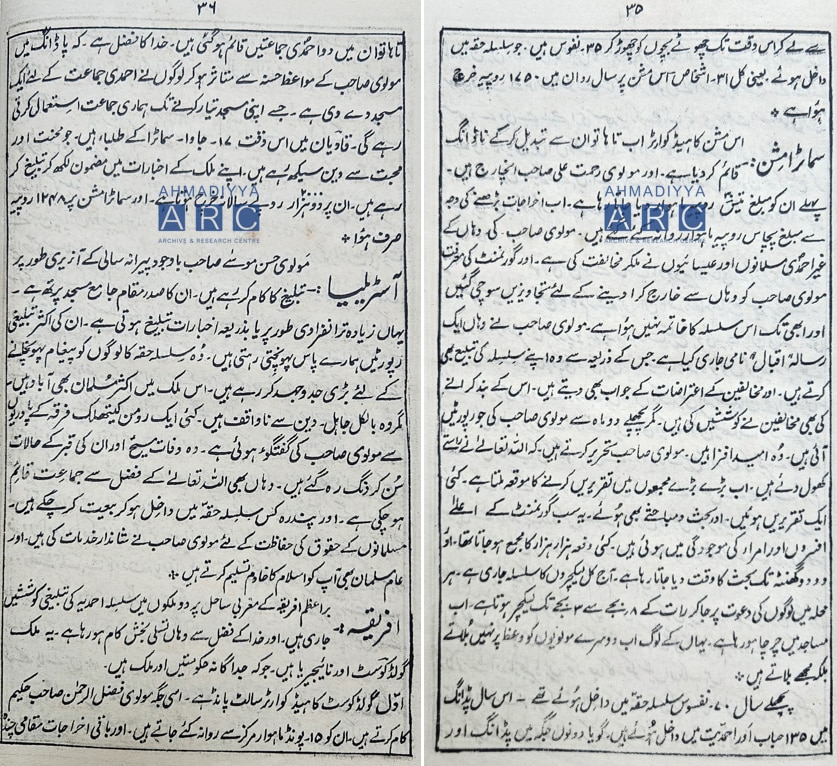 ۳۵
سے لے کر اس وقت تک چھوٹے بچوں کو چھوڑ کر ۳۵۔ نفوس ہیں۔ جو سلسلہ حقہ میں
داخل ہوئے۔ یعنی کل ۳۱۔ اشخاص اس مشن پر سال رواں میں ۱۴۵۰ روپیہ خرچ
ہوا ہے *
سماٹرا مشن:۔ اس مشن کا ہیڈ کوارٹر اب تاہا توان سے تبدیل کرکے پاڈانگ
قائم کر دیا ہے۔ اور مولوی رحمت علی صاحب انچارج ہیں۔
پہلے ان کو مبلغ روپیہ جاتا رہا ہے۔ اب اخراجات بڑھنے کی وجہ
سے مبلغ پچاس روپیہ ماہوار روانہ کئے جاتے ہیں۔ مولوی صاحب کی وہاں کے
غیر احمدی مسلمانوں اور عیسائیوں نے ملکر مخالفت کی ہے۔ اور گورنمنٹ کی معرفت
مولوی صاحب کو وہاں سے خارج کرا دینے کے لئے تجاویزیں سوچی گئیں
اور ابھی تک اس سلسلہ کا خاتمہ نہیں ہوا ہے۔ مولوی صاحب نے وہاں ایک
رسالہ "اقبال" نامی جاری کیا ہے۔ جس کے ذریعہ سے وہ اپنے سلسلہ کی تبلیغ بھی
کرتے ہیں۔ اور مخالفین کے اعتراضات کے جواب بھی دیتے ہیں۔ اس کے بند کرانے
کی بھی مخالفین نے کوششیں کی ہیں۔ مگر پچھلے دو ماہ سے مولوی صاحب کی جو رپورٹیں
آئی ہیں۔ وہ امید افزا ہیں۔ مولوی صاحب تحریر کرتے ہیں۔ کہ اللہ تعالیٰ نے راستے
کھول دئے ہیں۔ اب بڑے بڑے مجمعوں میں تقریریں کرنے کا موقعہ ملتا ہے۔ کئی
ایک تقریریں ہوئیں۔ اور بحث و مباحثے بھی ہوئے۔ یہ سب گورنمنٹ کے اعلےٰ
افسروں اور امراء کی موجودگی میں ہوتی ہیں۔ کئی دفعہ ہزار ہزار کا مجمع ہو جاتا تھا۔ اور
دو دو گھنٹہ تک بحث کا وقت دیا جاتا رہا ہے۔ آج کل لیکچروں کا سلسلہ جاری ہے۔ ہر
محلہ میں لوگوں کی دعوت پر جا کر رات کے ۸ بجے سے ۳ بجے تک لیکچر ہوتا ہے۔ اب
مساجد میں چرچا ہو رہا ہے۔ یہاں کے لوگ اب دوسرے مولویوں کو وعظ پر نہیں بلاتے
بلکہ مجھے بلاتے ہیں *
پچھلے سال ۴۰۔ نفوس سلسلہ حقہ میں داخل ہوئے تھے۔ اس سال پڈانگ
میں ۱۳۵ احباب اور احمدیت میں داخل ہوئے ہیں۔ گویا دونوں جگہ میں پڈانگ اور
۳۶
تاہا توان میں دو احمدی جماعتیں قائم ہو گئی ہیں۔ خدا کا فضل ہے۔ کہ پاڈانگ میں
مولوی صاحب کے مواعظ حسنہ سے متاثر ہو کر لوگوں نے احمدی جماعت کے لئے ایک
مسجد دے دی ہے۔ جسے اپنی مسجد تیار کرنے تک ہماری جماعت استعمال کرتی
رہے گی۔ قادیان میں اس وقت ۱۷۔ جاوا۔ سماٹرا کے طلباء ہیں۔ جو محنت اور
محبت سے دین سیکھ رہے ہیں۔ اپنے ملک کے اخبارات میں مضمون لکھ کر تبلیغ کر
رہے ہیں۔ ان پر دو ہزار روپے سالانہ خرچ ہوتا ہے۔ اور سماٹرا مشن پر ۱۲۴۸ روپیہ
صرف ہوا *
آسٹریلیا:۔ مولوی حسن موسے صاحب باوجود پیرانہ سالی کے آنریری طور پر
تبلیغ کا کام کر رہے ہیں۔ ان کا صدر مقام جامع مسجد پرتھ ہے۔
یہاں زیادہ تر انفرادی طور پر یا بذریعہ اخبارات تبلیغ ہوتی ہے۔ ان کی اکثر تبلیغی
رپورٹیں ہمارے پاس پہونچتی رہتی ہیں۔ وہ سلسلہ حقہ کا لوگوں کو پیغام پہونچانے
کے لئے بڑی جد و جہد کر رہے ہیں۔ اس ملک میں اکثر مسلمان بھی آباد ہیں۔
مگر وہ بالکل جاہل۔ دین سے ناواقف ہیں۔ کئی ایک رومن کیتھلک فرقہ کے پادریوں
سے مولوی صاحب کی گفتگو ہوئی ہے۔ وہ وفات مسیح اور ان کی قبر کے حالات
سن کر دنگ رہ گئے ہیں۔ وہاں بھی اللہ تعالیٰ کے فضل سے جماعت قائم
ہو چکی ہے۔ اور پندرہ کس سلسلہ حقہ میں داخل ہو کر بیعت کر چکے ہیں۔
مسلمانوں کے حقوق کی حفاظت کے لئے مولوی صاحب نے شاندار خدمات کی ہیں۔ اور
عام مسلمان بھی آپ کو اسلام کا خادم تسلیم کرتے ہیں *
افریقہ:۔ براعظم افریقہ کے مغربی ساحل پر دو ملکوں میں سلسلہ احمدیہ کی تبلیغی کوششیں
جاری ہیں۔ اور خدا کے فضل سے وہاں تسلی بخش کام ہو رہا ہے۔ یہ ملک
گولڈ کوسٹ اور نائیجیریا ہیں۔ جو کہ جداگانہ حکومتیں اور ملک ہیں۔
اول گولڈ کوسٹ کا ہیڈ کوارٹر سالٹ پانڈ ہے۔ اسی جگہ مولوی فضل الرحمن صاحب حکیم
کام کرتے ہیں۔ ان کو ۱۵۔ پونڈ ماہوار مرکز سے روانہ کئے جاتے ہیں۔ اور باقی اخراجات مقامی چندہ
AHMADIYYA
ARC
ARCHIVE & RESEARCH CENTRE
AHMADIYYA
ARC
ARCHIVE & RESEARCH CENTRE